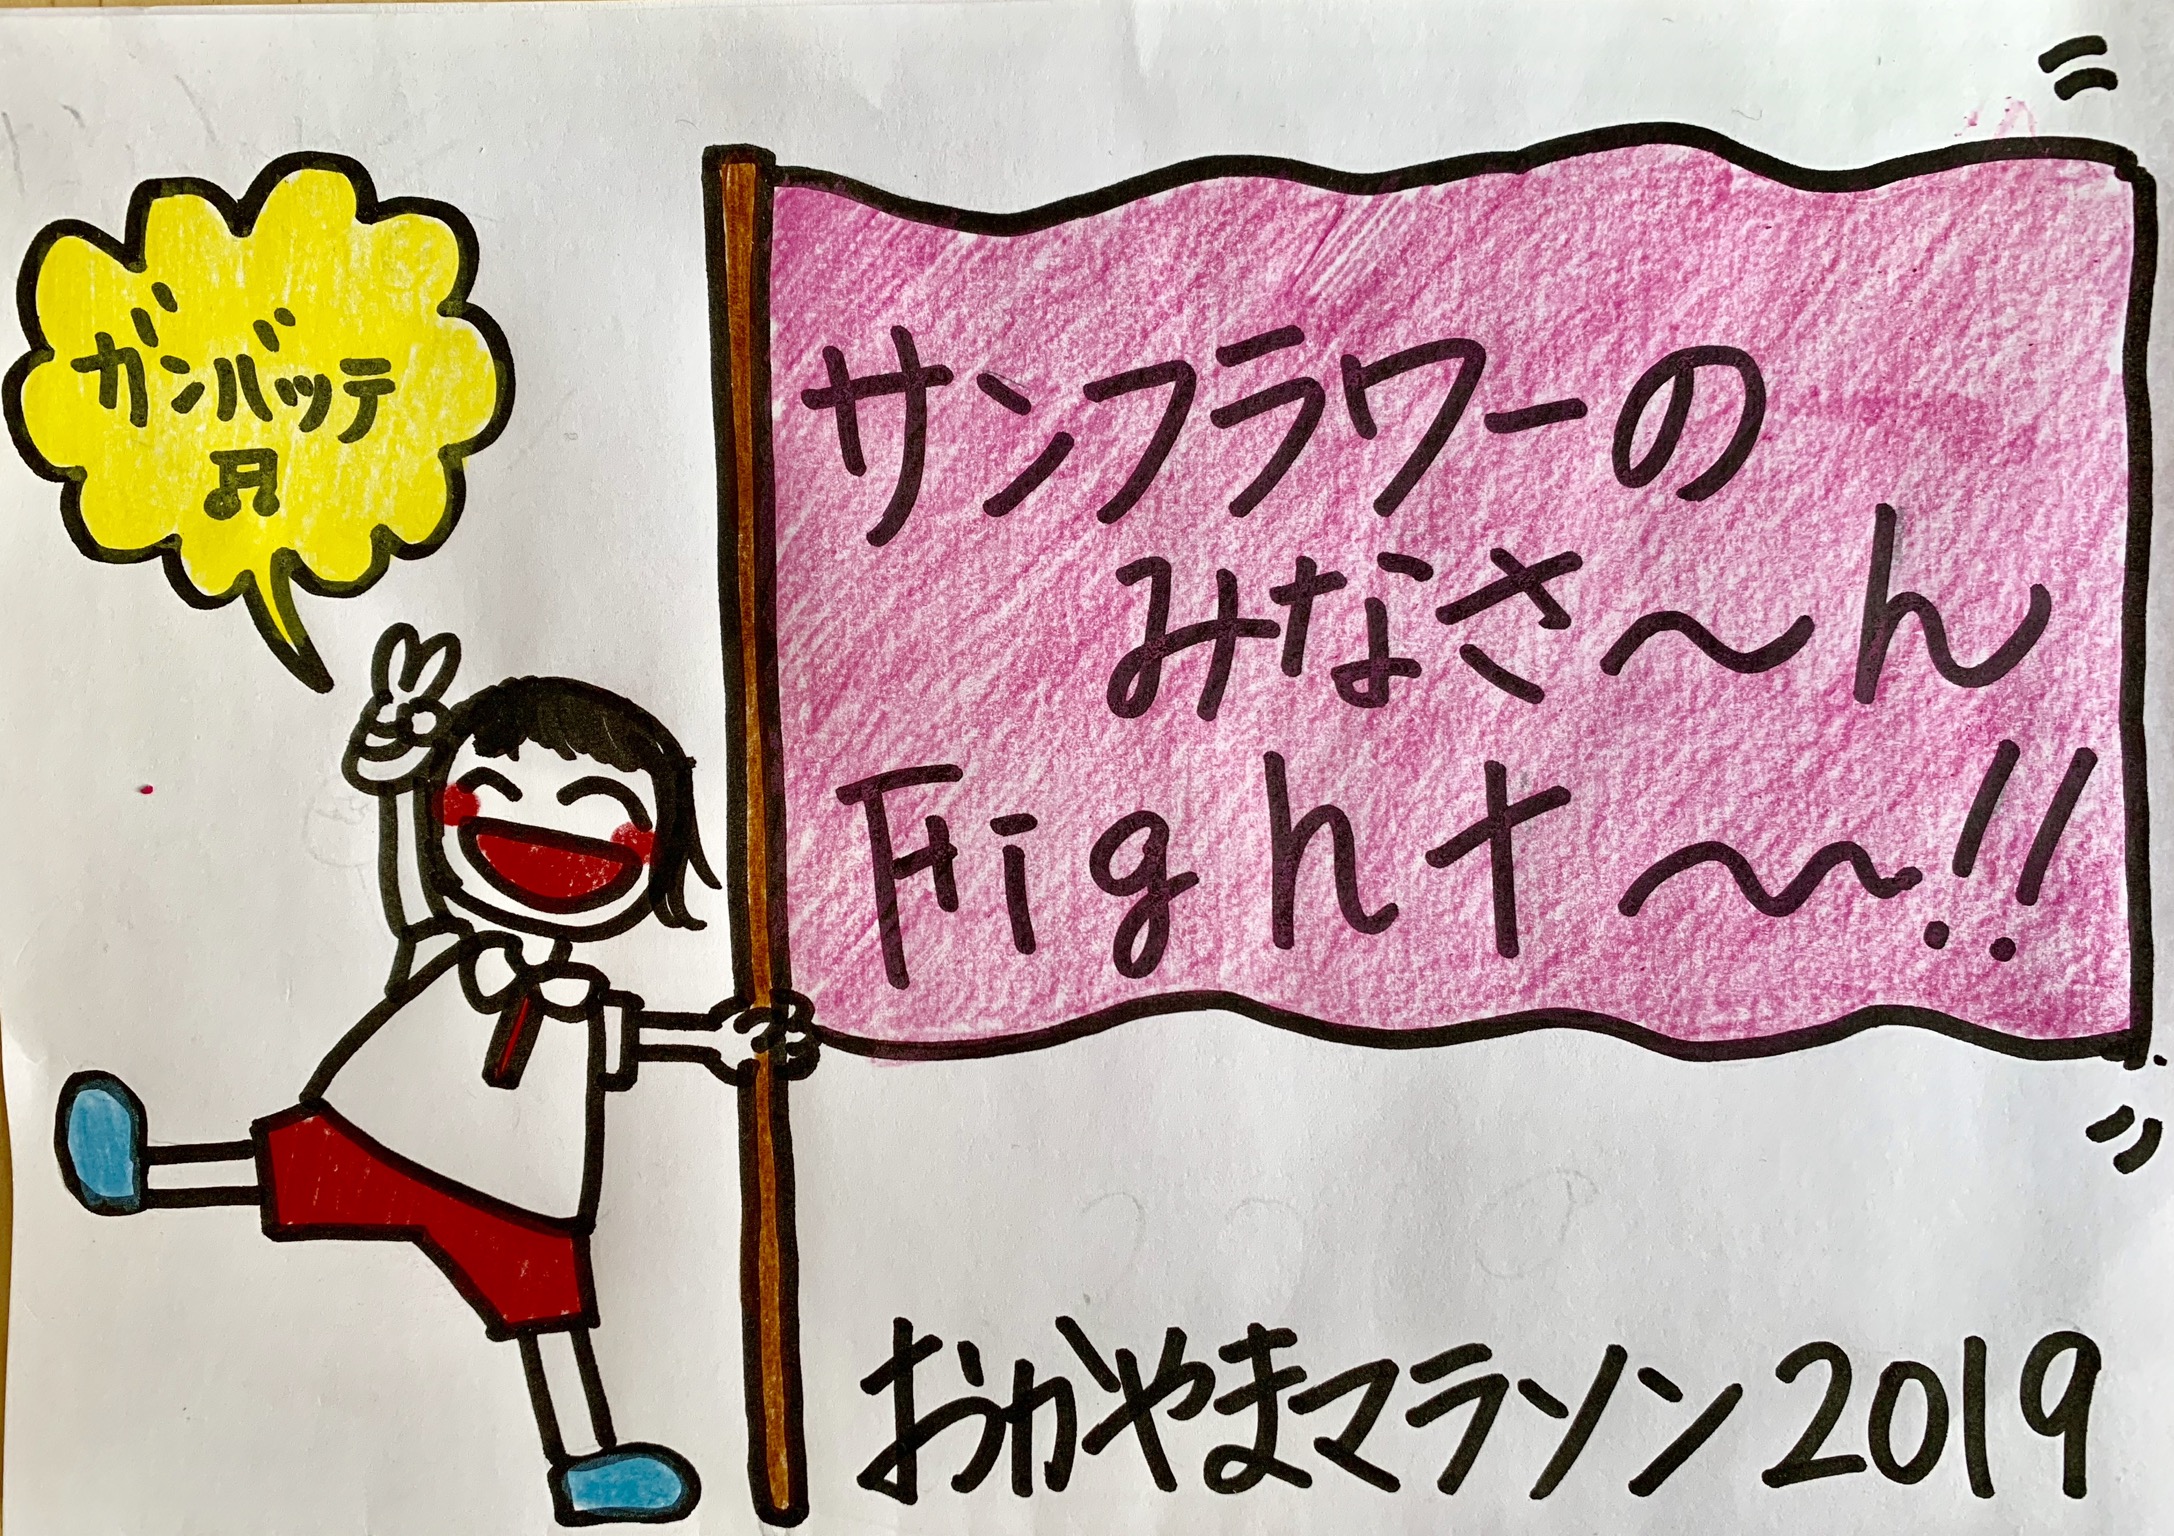 ガンバッテ
♫
サンフラワーの
みなさ〜ん
Fight〜!!
おかやまマラソン2019